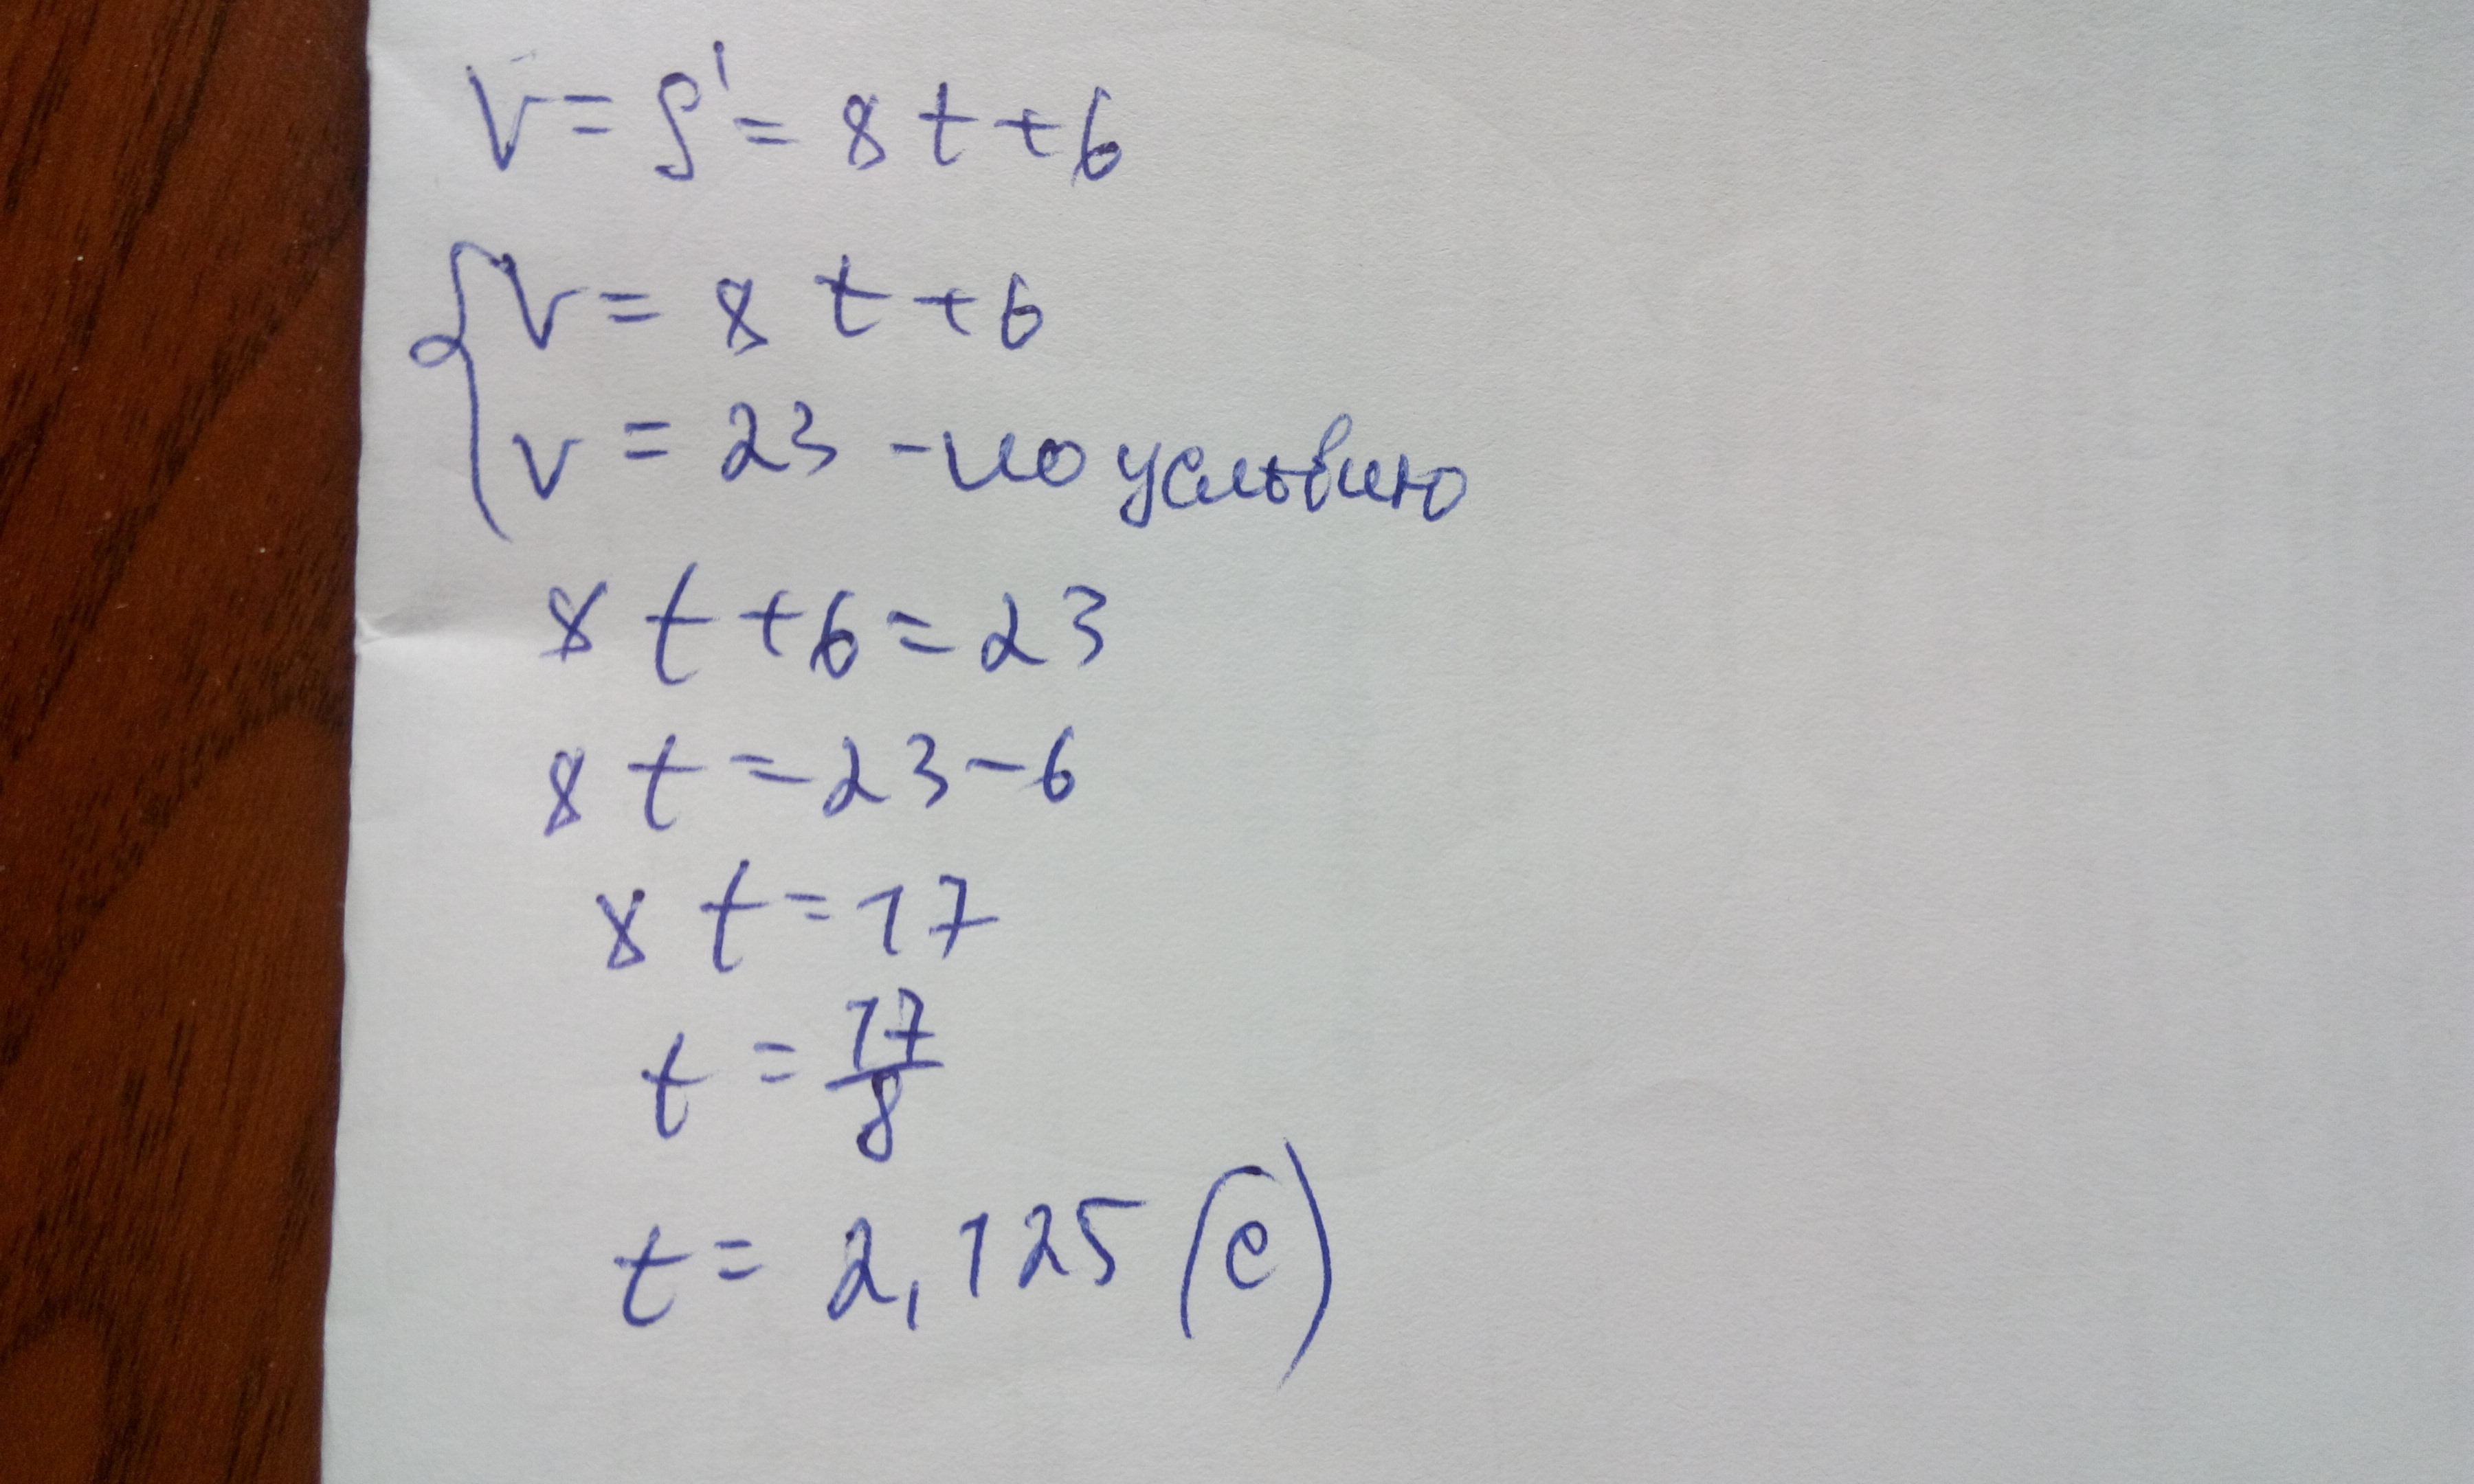 V = S' = 8t + 6
V = 8t + 6
v = 23 - по условию
8t + 6 = 23
8t = 23 - 6
8t = 17
t = 17/8
t = 2,125 (с)